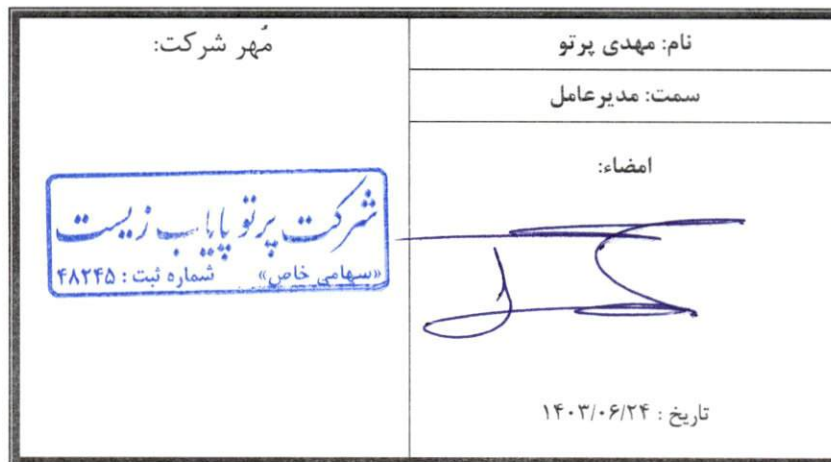 نام: مهدی پرتو
سمت: مدیرعامل
امضاء:
تاریخ : ۱۴۰۳/۰۶/۲۴
مُهر شرکت:
شرکت پرتو پایاب زیست
«سهامی خاص» شماره ثبت : ۴۸۲۴۵